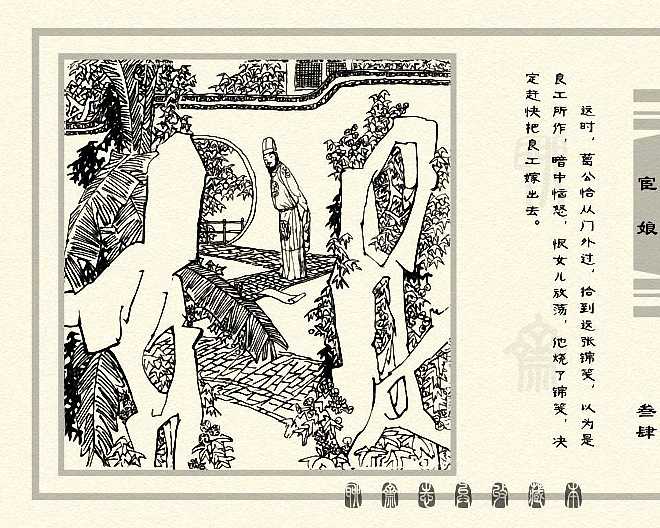 这时，葛公恰从门外过，拾到这张锦笺，以为是
良工所作，暗中恼怒，恨女儿放荡，他烧了锦笺，决
定赶快把良工嫁出去。
宦娘
叁肆